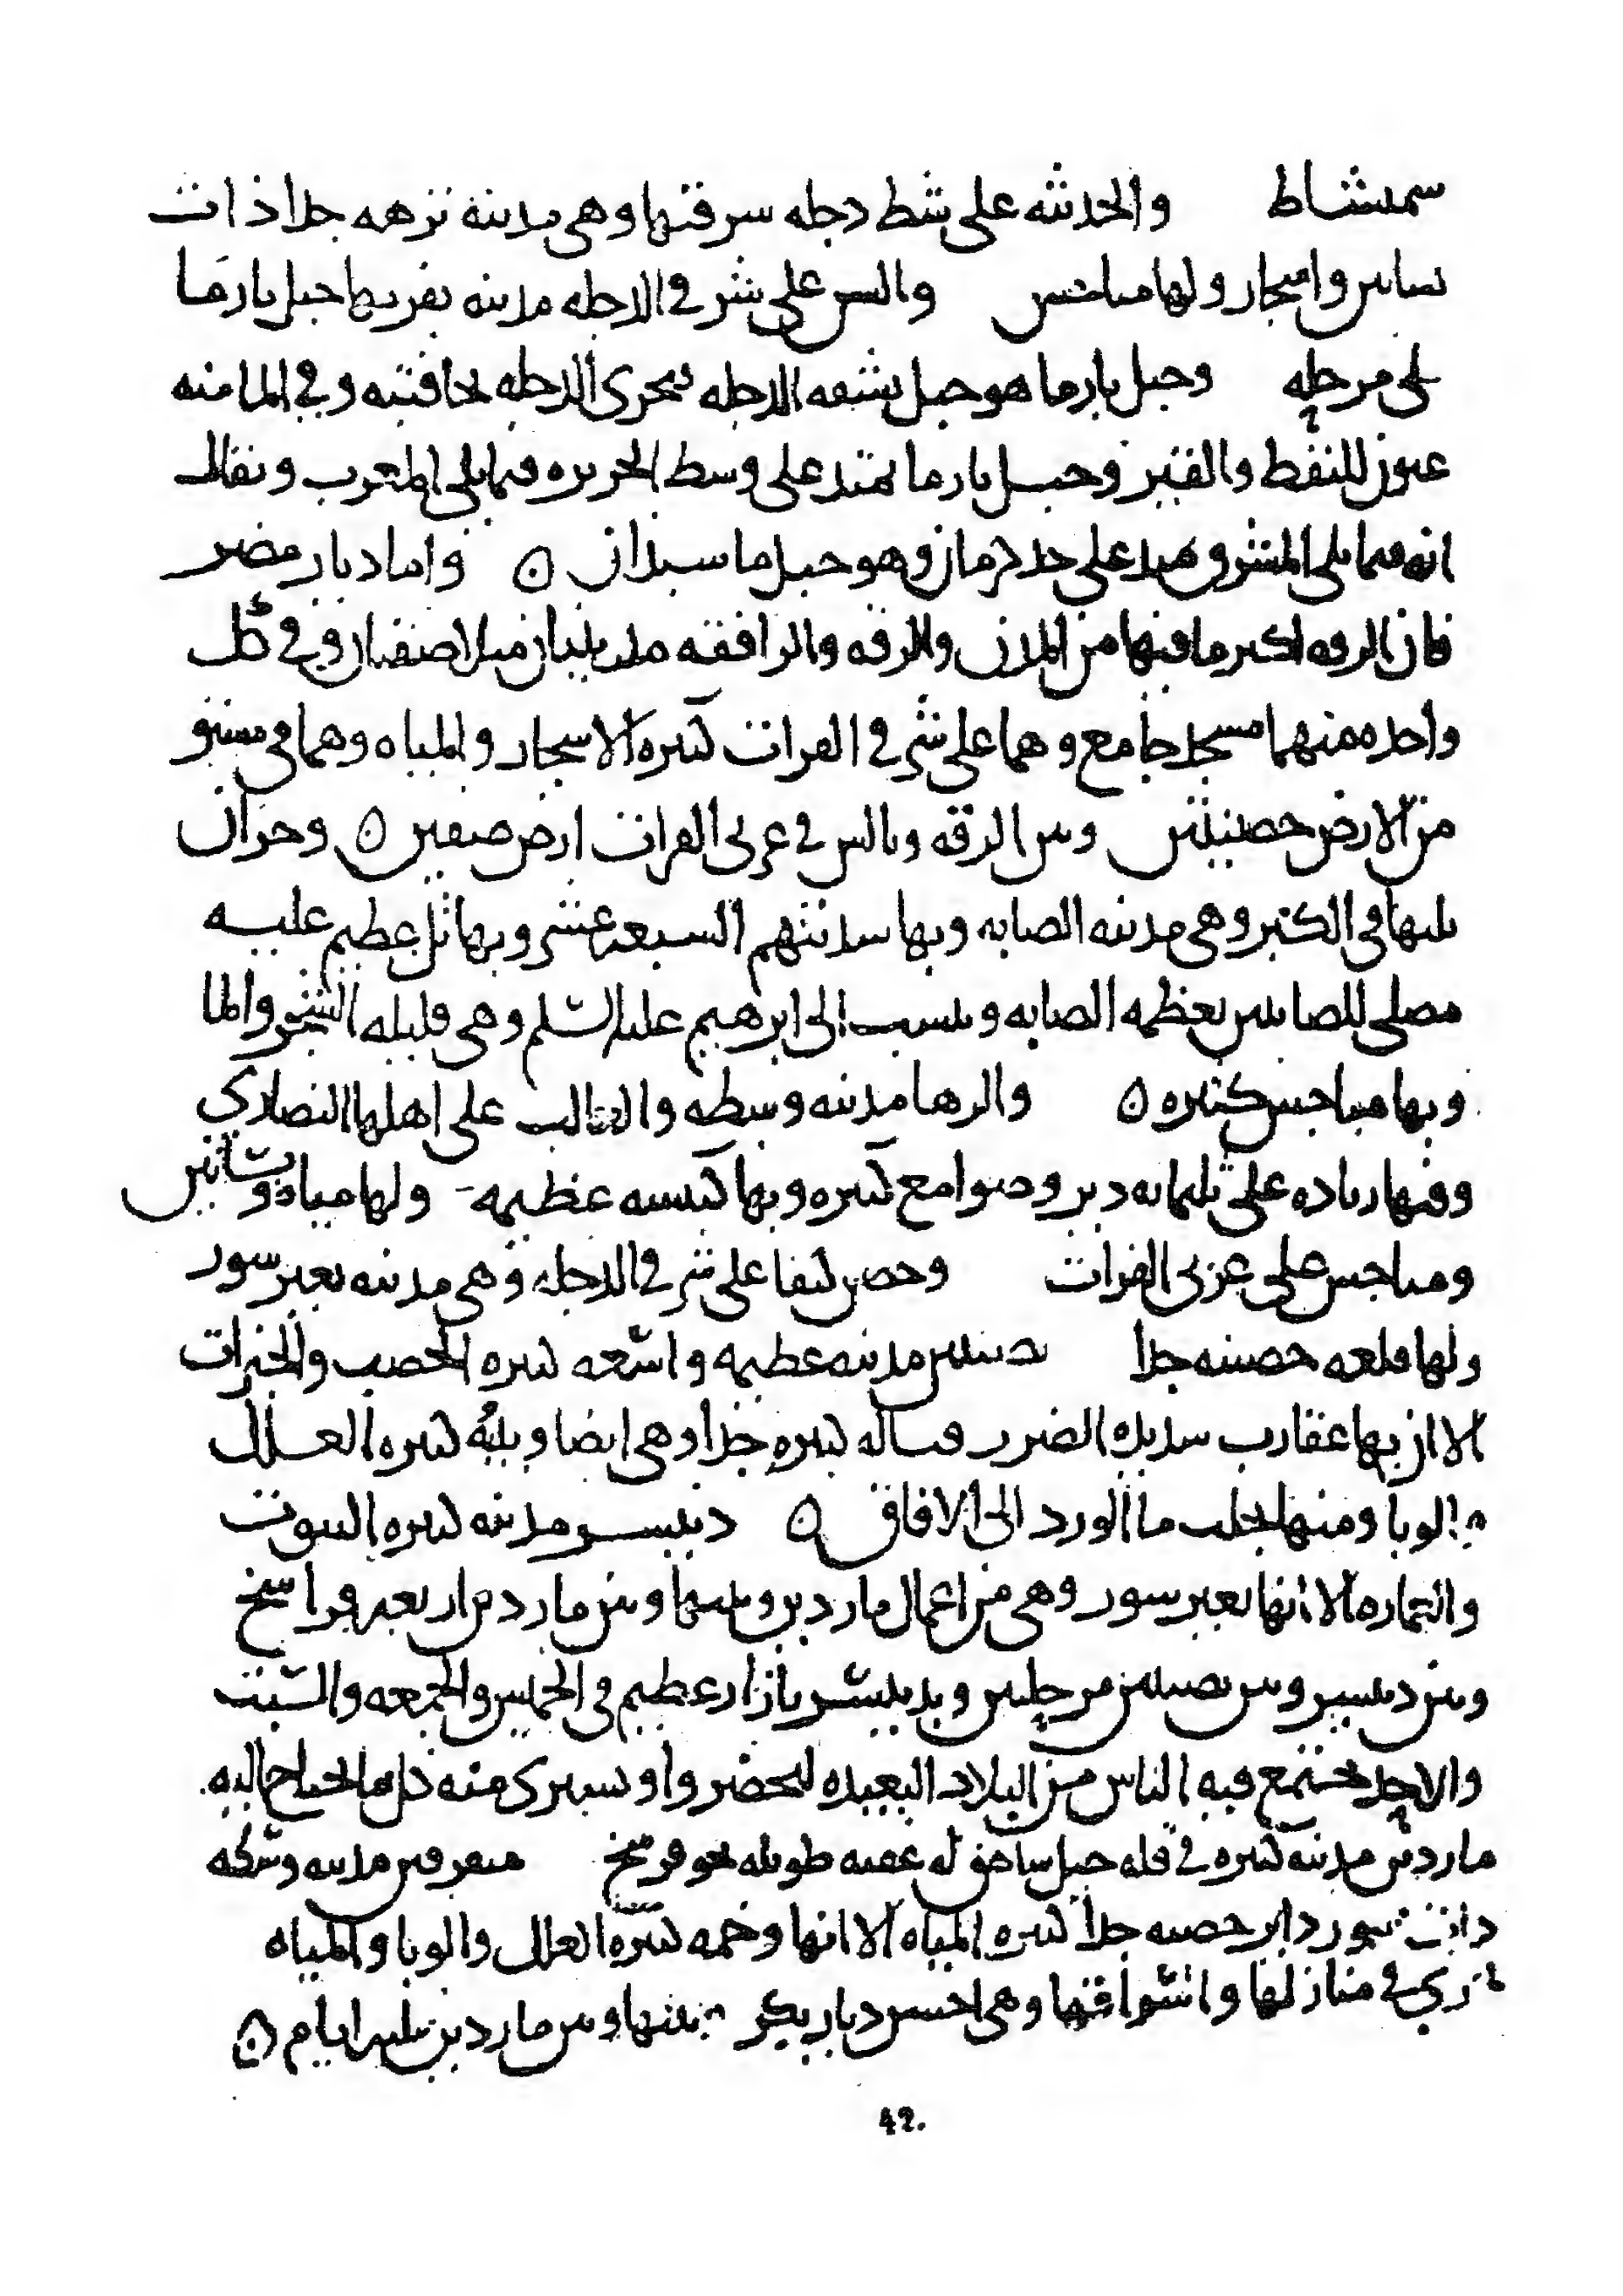 سمشاط والحديثه على شط دجله شرقيها وهى مدينة نزهه جدا ذات
بساتين واشجار ولها مباخس والسن على شرقى الدجله مدينه بقربها جبل بارما
على مرحله وجبل بارما هو جبل يشقه الدجله فيجرى الدجله بحافتيه وفى الما منه
عيون للنفط والقير وجبل بارما يمتد على وسط الجزيره فيما يلى المغرب ويقال
انه فيما يلى المشرق يمتد على حد كرمان وهو جبل ماسبذان ن واما ديار مضر
فان الرقه اكبر ما فيها من المدن والرقه والرافقه مدينتان متلاصقتان وفى كل
واحده منهما مسجد جامع وهما على شرقى الفرات كثيره الاشجار والمياه وهما فى مستو
من الارض خصبتين وبين الرقه وبالس فى غربى الفرات ارض صفين ن وحران
يليها فى الكبر وهى مدينه الصابه وبها سدنتهم السبعه عشر وبها تل عظيم عليه
مصلى للصابين يعظمه الصابه وينسب الى ابرهيم عليه السلم وهى قليله الشجر والما
وبها مباخس كثيره ن والرها مدينه وسطه والغالب على اهلها النصارى
وفيها زياده على ثلثمايه دير وصوامع كثيره وبها كنيسه عظيمه ولها مياه وبساتين
ومباخس على غربى الفرات وحصن كيفا على شرقى الدجله وهى مدينه بغير سور
ولها قلعه حصينه جدا نصيبين مدينه عظيمه واسعه كثيره الخصب والخيرات
الا ان بها عقارب شديده الضرر قتاله كثيره جدا وهى ايضا وبئه كثيره العلل
والوبا ومنها يجلب ما الورد الى الافاق ن دنيسر مدينه كثيره البيوت
والتجاره الا انها بغير سور وهى من اعمال ماردين وبينها وبين ماردين اربعه فراسخ
وبين دنيسر وبين نصيبين مرحلتين وبدنيسر بازار عظيم فى الخميس والجمعه والسبت
والاحد يجتمع فيه الناس من البلاد البعيده ليحضروا ويشترى منه كل ما يحتاج اليه
ماردين مدينه كبيره فى قله جبل شاهق له عقبه طويله نحو فرسخ ميفرقين مدينه وسطه
ذات سور داير حصينه جدا كثيره المياه الا انها وخمه كثيره العلل والوبا والمياه
تجرى فى منازلها واسواقها وهى احسن ديار بكر بينها وبين ماردين ثلثه ايام ن
42.